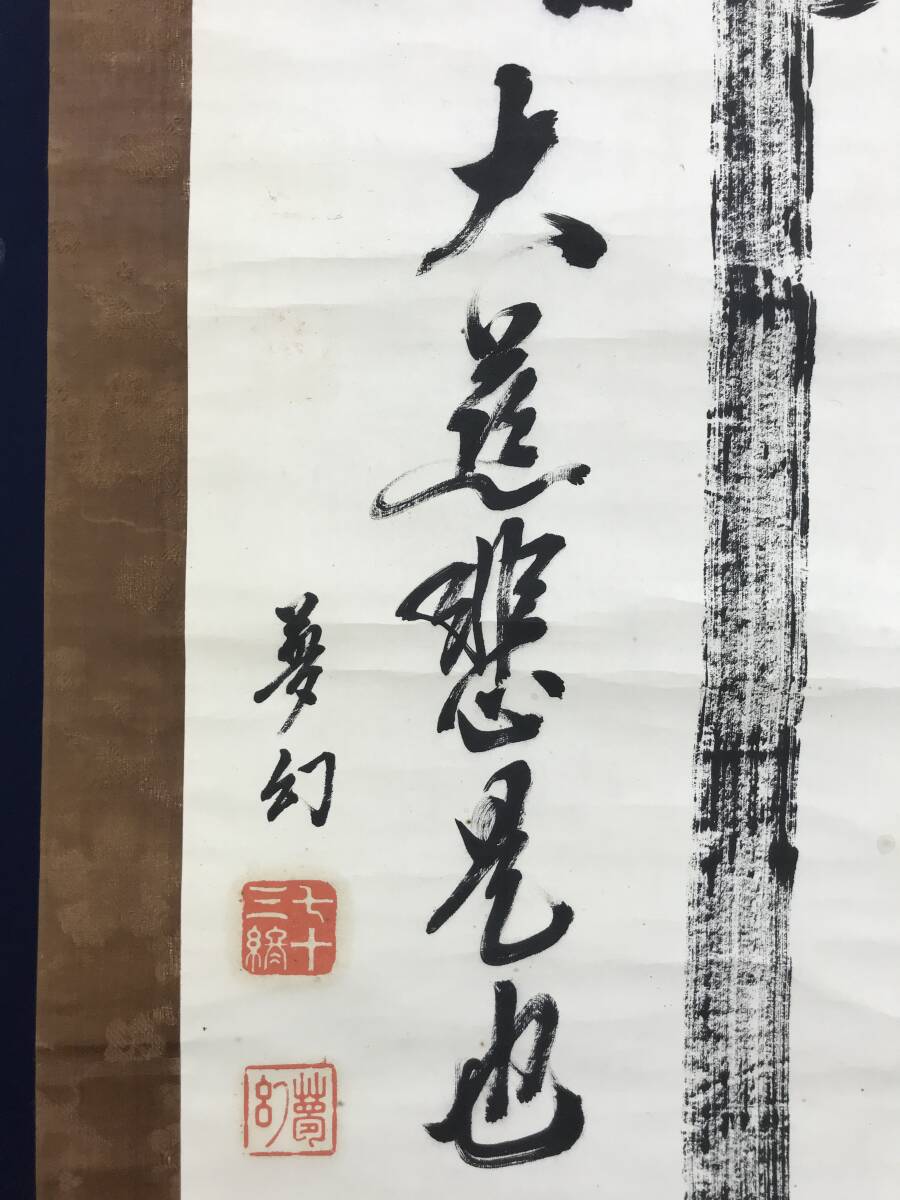 大慈悲是也
夢幻
七十三翁
夢幻